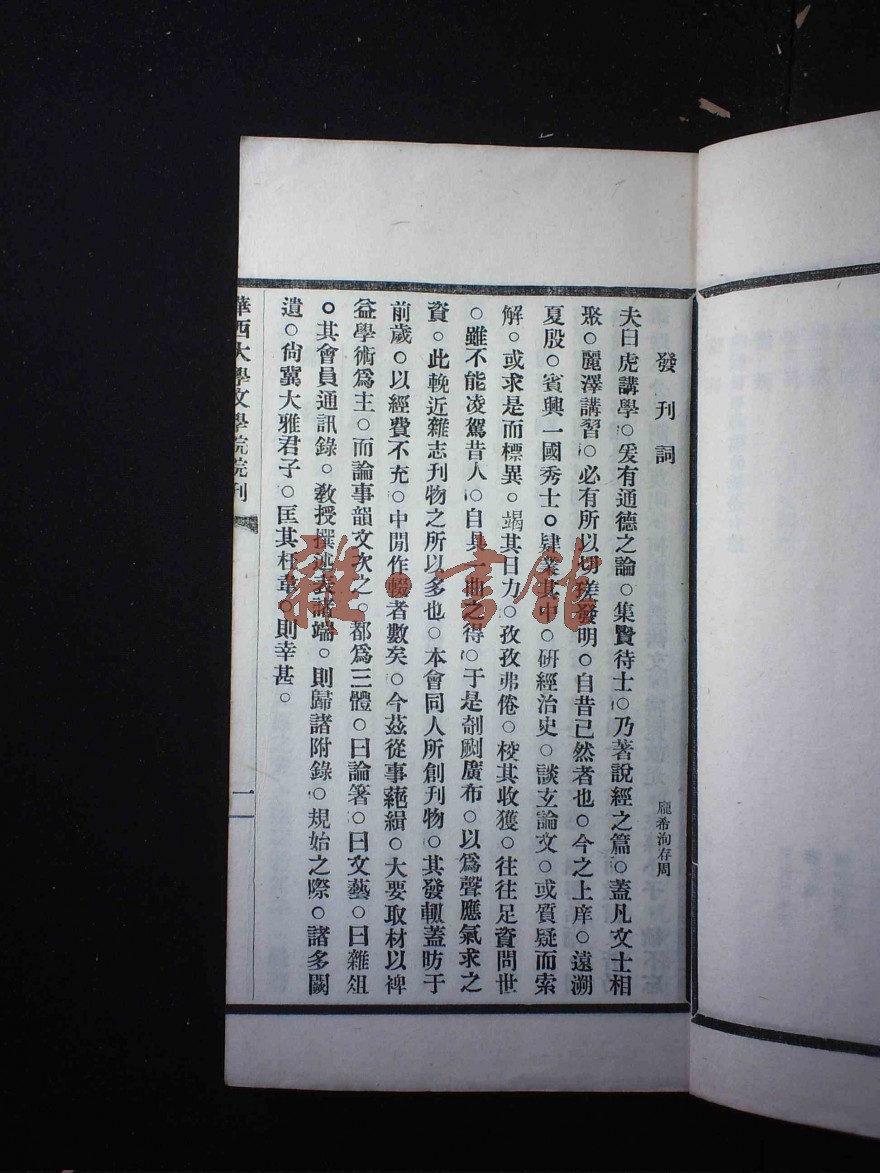 發刊詞
龐希洵存周
夫白虎講學。爰有通德之論。集賢待士。乃著說經之篇。蓋凡文士相
聚。麗澤講習。必有所以切磋發明。自昔已然者也。今之上庠。遠溯
夏殷。賓興一國秀士。肄業其中。研經治史。談玄論文。或質疑而索
解。或求是而標異。竭其日力。孜孜弗倦。校其收獲。往往足資問世
。雖不能凌駕昔人。自具一曲之得。于是剞劂廣布。以爲聲應氣求之
資。此輓近雜志刊物之所以多也。本會同人所創刊物。其發軔蓋昉于
前歲。以經費不充。中閒作輟者數矣。今茲從事蕝緝。大要取材以裨
益學術爲主。而論事韻文次之。都爲三體。曰論箸。曰文藝。曰雜俎
。其會員通訊錄。敎授撰述表諸端。則歸諸附錄。規始之際。諸多闕
遺。尙冀大雅君子。匡其枉韋。則幸甚。
華西大學文學院院刊
一
雅·書館